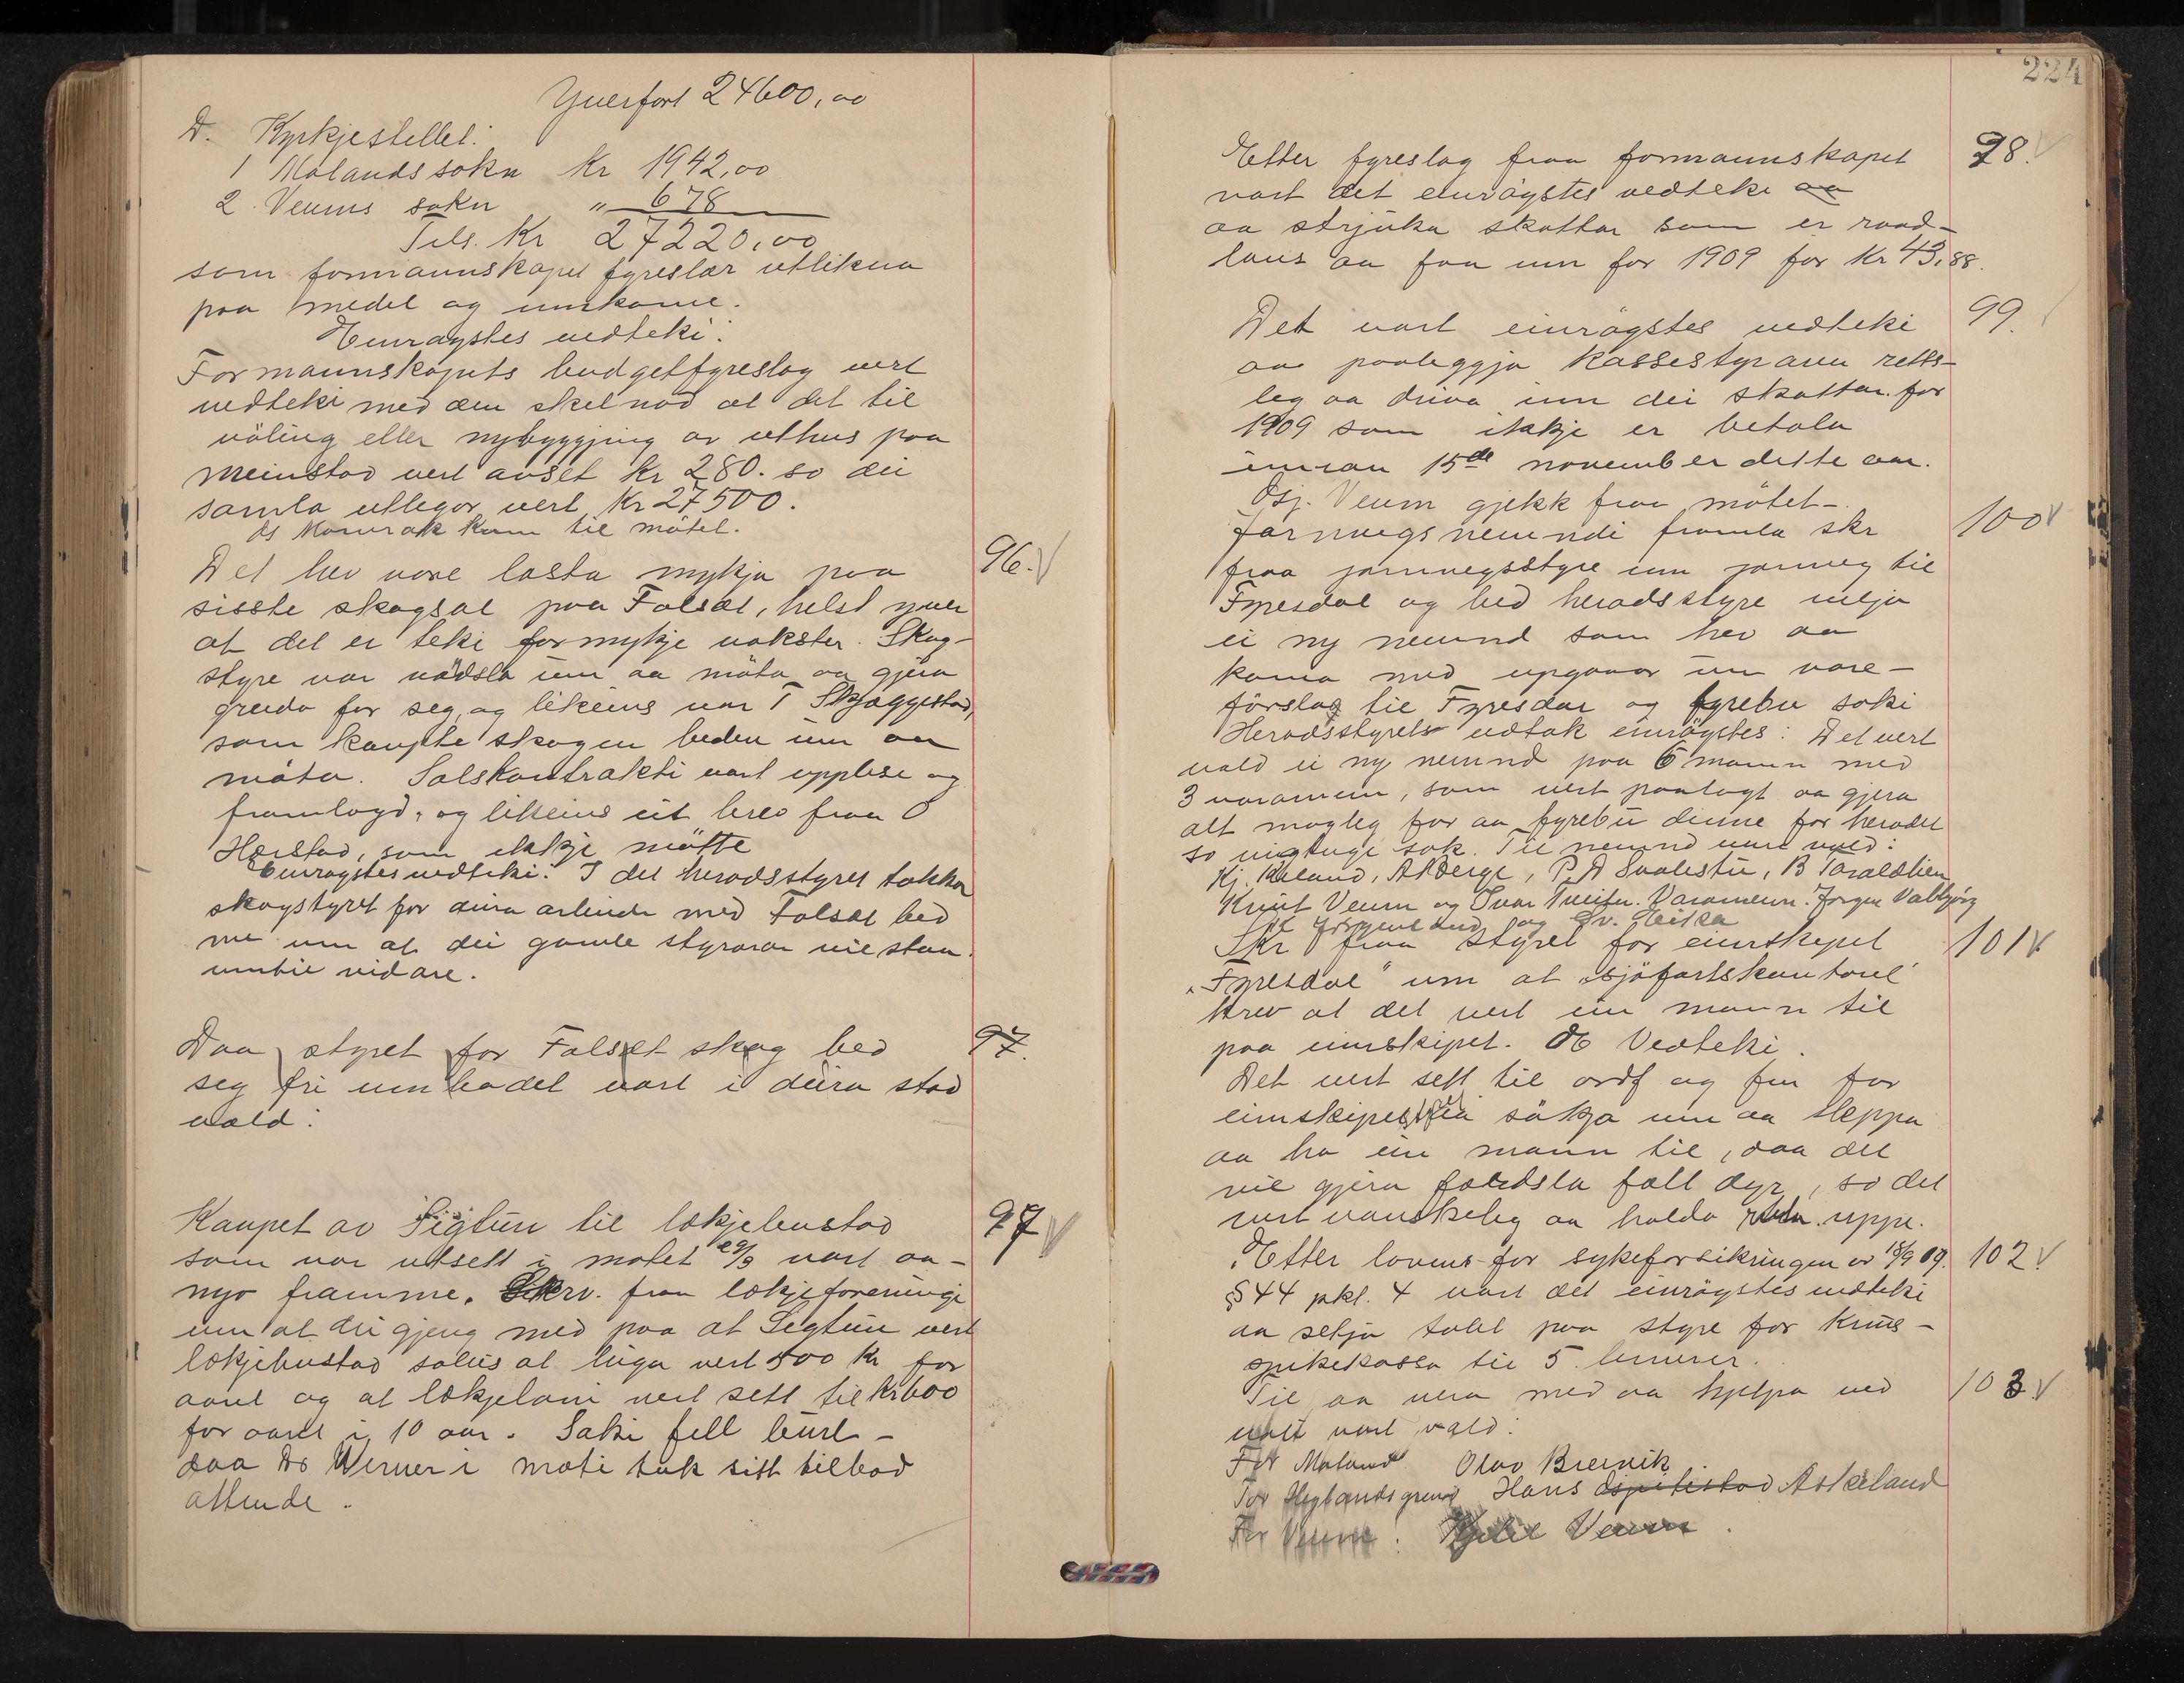 Yverført 24600,00
D. Kyrkjestellet:
1 Molands sokn Kr 1942,00
2. Veums sokn " 678
Tils. Kr 27220,00
som formannskapet fyreslær utlikna
paa medel og innkome.
Einrøystes vedteki:
Formannskapets budgetfyreslag vert
vedteki med den skelnad at det til
vøling eller nybyggjing av uthus paa
meinstad vert avset Kr 280. so dei
samla utlegor vert Kr 27500.
kom til møtet.
96. V
Det hev vore lasta mykje paa
sisste skogsal paa Folsæt, helst yver
at det er teki formykje vokster. Skog-
styre var nødsla um aa møta og gjera
greida for seg, og likeins var T Skjeggestad,
som kaupte skogen beden um aa
møta. Salskontrakti vart upplese og
framlagd, og likeins eit brev fraa O
Hærstad, som ikkje møtte
Einrøystes vedteki: I det heradsstyret takka
skogstyret for deira arbeide med Folsæt bed
me um at dei gamle styrarar vil staa
inntil vidare.
97.
Daa styret for Folsæt skog bed
seg fri um vart i deira stad
vald:
97 V
Kaupet av Sigtun til lækjebustad
som var utsett i møtet 29/3 vart aa-
nyo framme. Skrv. fraa lækjeforeningi
um at dei gjeng med paa at Sigtun vert
lækjebustad soleis at leiga vert 500 kr for
aaret og at lækjeløni vert sett til kr 600
for aaret i 10 aar. Saki fell burt -
daa Dr Werner i møti tok sitt tilbod
attende.
224
98. V
Etter fyreslag fraa formannskapet
vart det einrøystes vedteke aa
aa strjuka skattar som er raad-
laus aa faa inn for 1909 for Kr 43,88.
99.
Det vart einrøystes vedteki
aa paaleggja kassestyraren retts-
leg aa driva inn dei skattar for
1909 som ikkje er betala
innan 15de november dette aar.
Veum gjekk fraa møtet -
100 V
Jarnvegsnemndi framla skr
fraa jarnvegsstyre um jarnveg til
Fyresdal og bed heradsstyre velja
ei ny nemnd som hev aa
koma med upgaavor um vare-
førsla til Fyresdal og fyrebu saki
Heradsstyrets vedtak einrøystes: Det vert
vald ei ny nemnd paa 6 mann med
3 varamenn, som vert paalagt aa gjera
alt mogleg for aa fyrebu denne for heradet
so vigtuge sak. Til nemnd vart vald:
Kj. Kleland, A Berge, P. A Svalestu, B Taraldlien
Knut Veum og Ivar Tveiten. Varamenn. Jørgen Valbjørg
og Sv.
101 V
Skr fraa styret for eimskipet
„Fyresdal" um at sjøfartskontoret
krev at det vert ein mann til
paa eimskipet. Vedteki.
Det vert sett til ordf og for
eimskipet søkja um aa sleppa
aa ha ein mann til, daa det
vil gjera færdsla fælt dyr, so det
vert vanskeleg aa halda uppe.
102 V
Etter lovens for sykeforsikringen av 18/9 09.
§ 44 pkt. 4 vart det einrøystes vedteki
aa setja talet paa styre for Kreds-
sjukekassa til 5 lemmer.
103. V
Til aa vera med aa hjelpa ved
valt vart vald:
For Moland Olav Breivik
For Høglandsgrend Hans Askeland
For Veum: Kjetil Veum